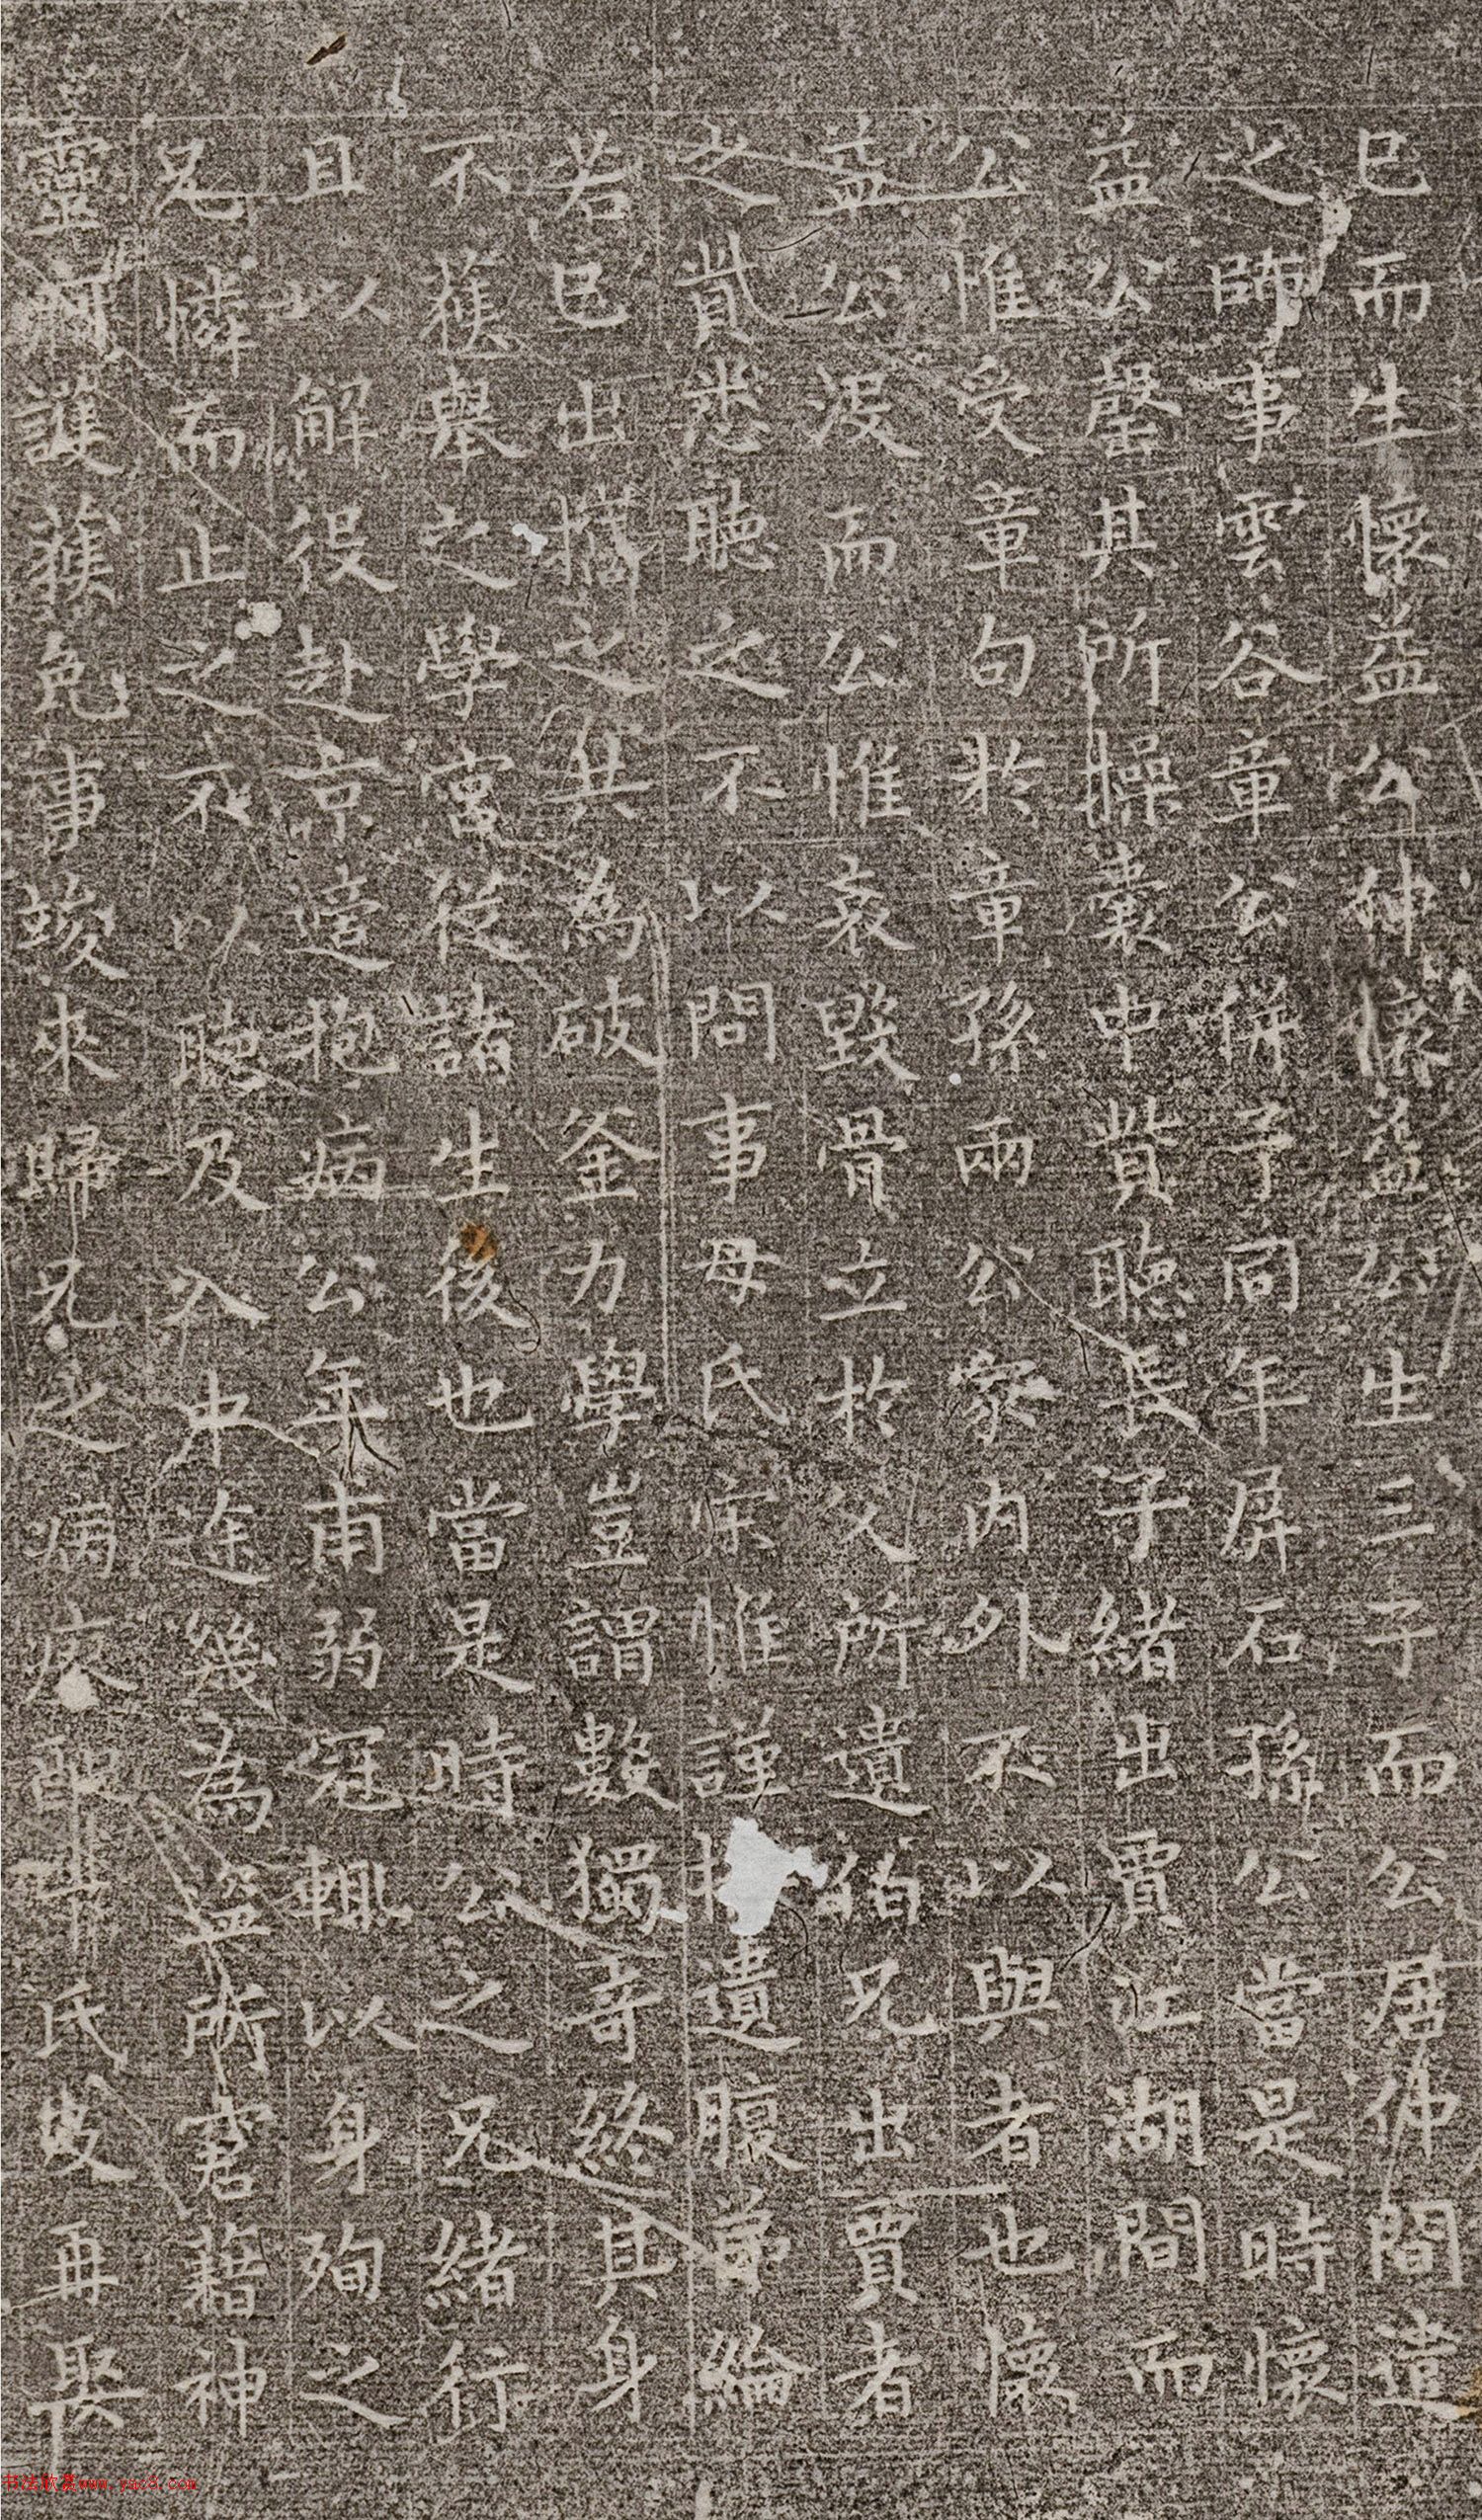 已而生懷益公紳懷益公生三子而公居仲間遣
之師事雲谷章公併子同年屏石孫公當是時懷
益公罄其所操囊中貲聽長子緒出賈江湖間而
公惟受章句於章孫兩公家內外不以與者也懷
益公沒而公惟哀毀骨立於父所遺伯兄出賈者
之貲悉聽之不以問事母氏宋惟謹撫遺腹弟綸
若己出攜之共為破釜力學豈謂數獨奇終其身
不獲舉之學宮從諸生後也當是時公之兄緒行
且以解役赴京遘抱病公年甫弱冠輒以身殉之
兄憐而止之不以聽及入中途幾為盜所窘藉神
靈呵護獲免事竣來歸兄之病痊配辛氏歿再娶
书法欣赏www.yac8.com